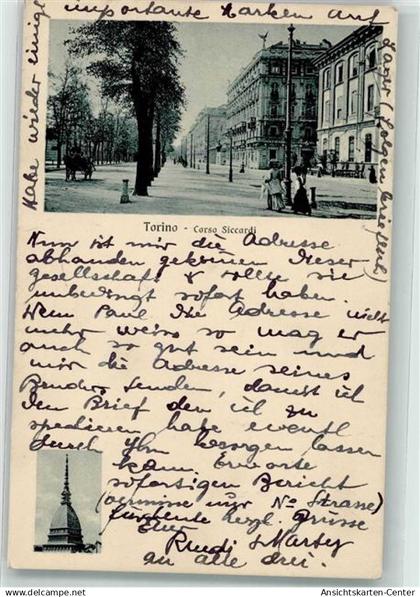 Habe wieder einige
importante Marken auf
Lager (folgen erklärlich)
Torino - Corso Siccardi
Nun ist mir die Adresse
abhanden gekommen dieser
gesellschaft & sollte sie
unbedingt sofort haben.
Wenn Paul die Adresse nicht
mehr weiss so mag er
auch so gut sein und
mir die Adresse seines
Bruders senden, damit ich
den Brief den ich zu
spedieren habe eventl
durch Ihn besorgen lassen
kann. Erwarte
sofortigen Bericht
(vermisse nur No Strasse)
herzl. Grüsse
Eure
Ruedi & Martsy
an alle drei.
Ansichtskarten-Center